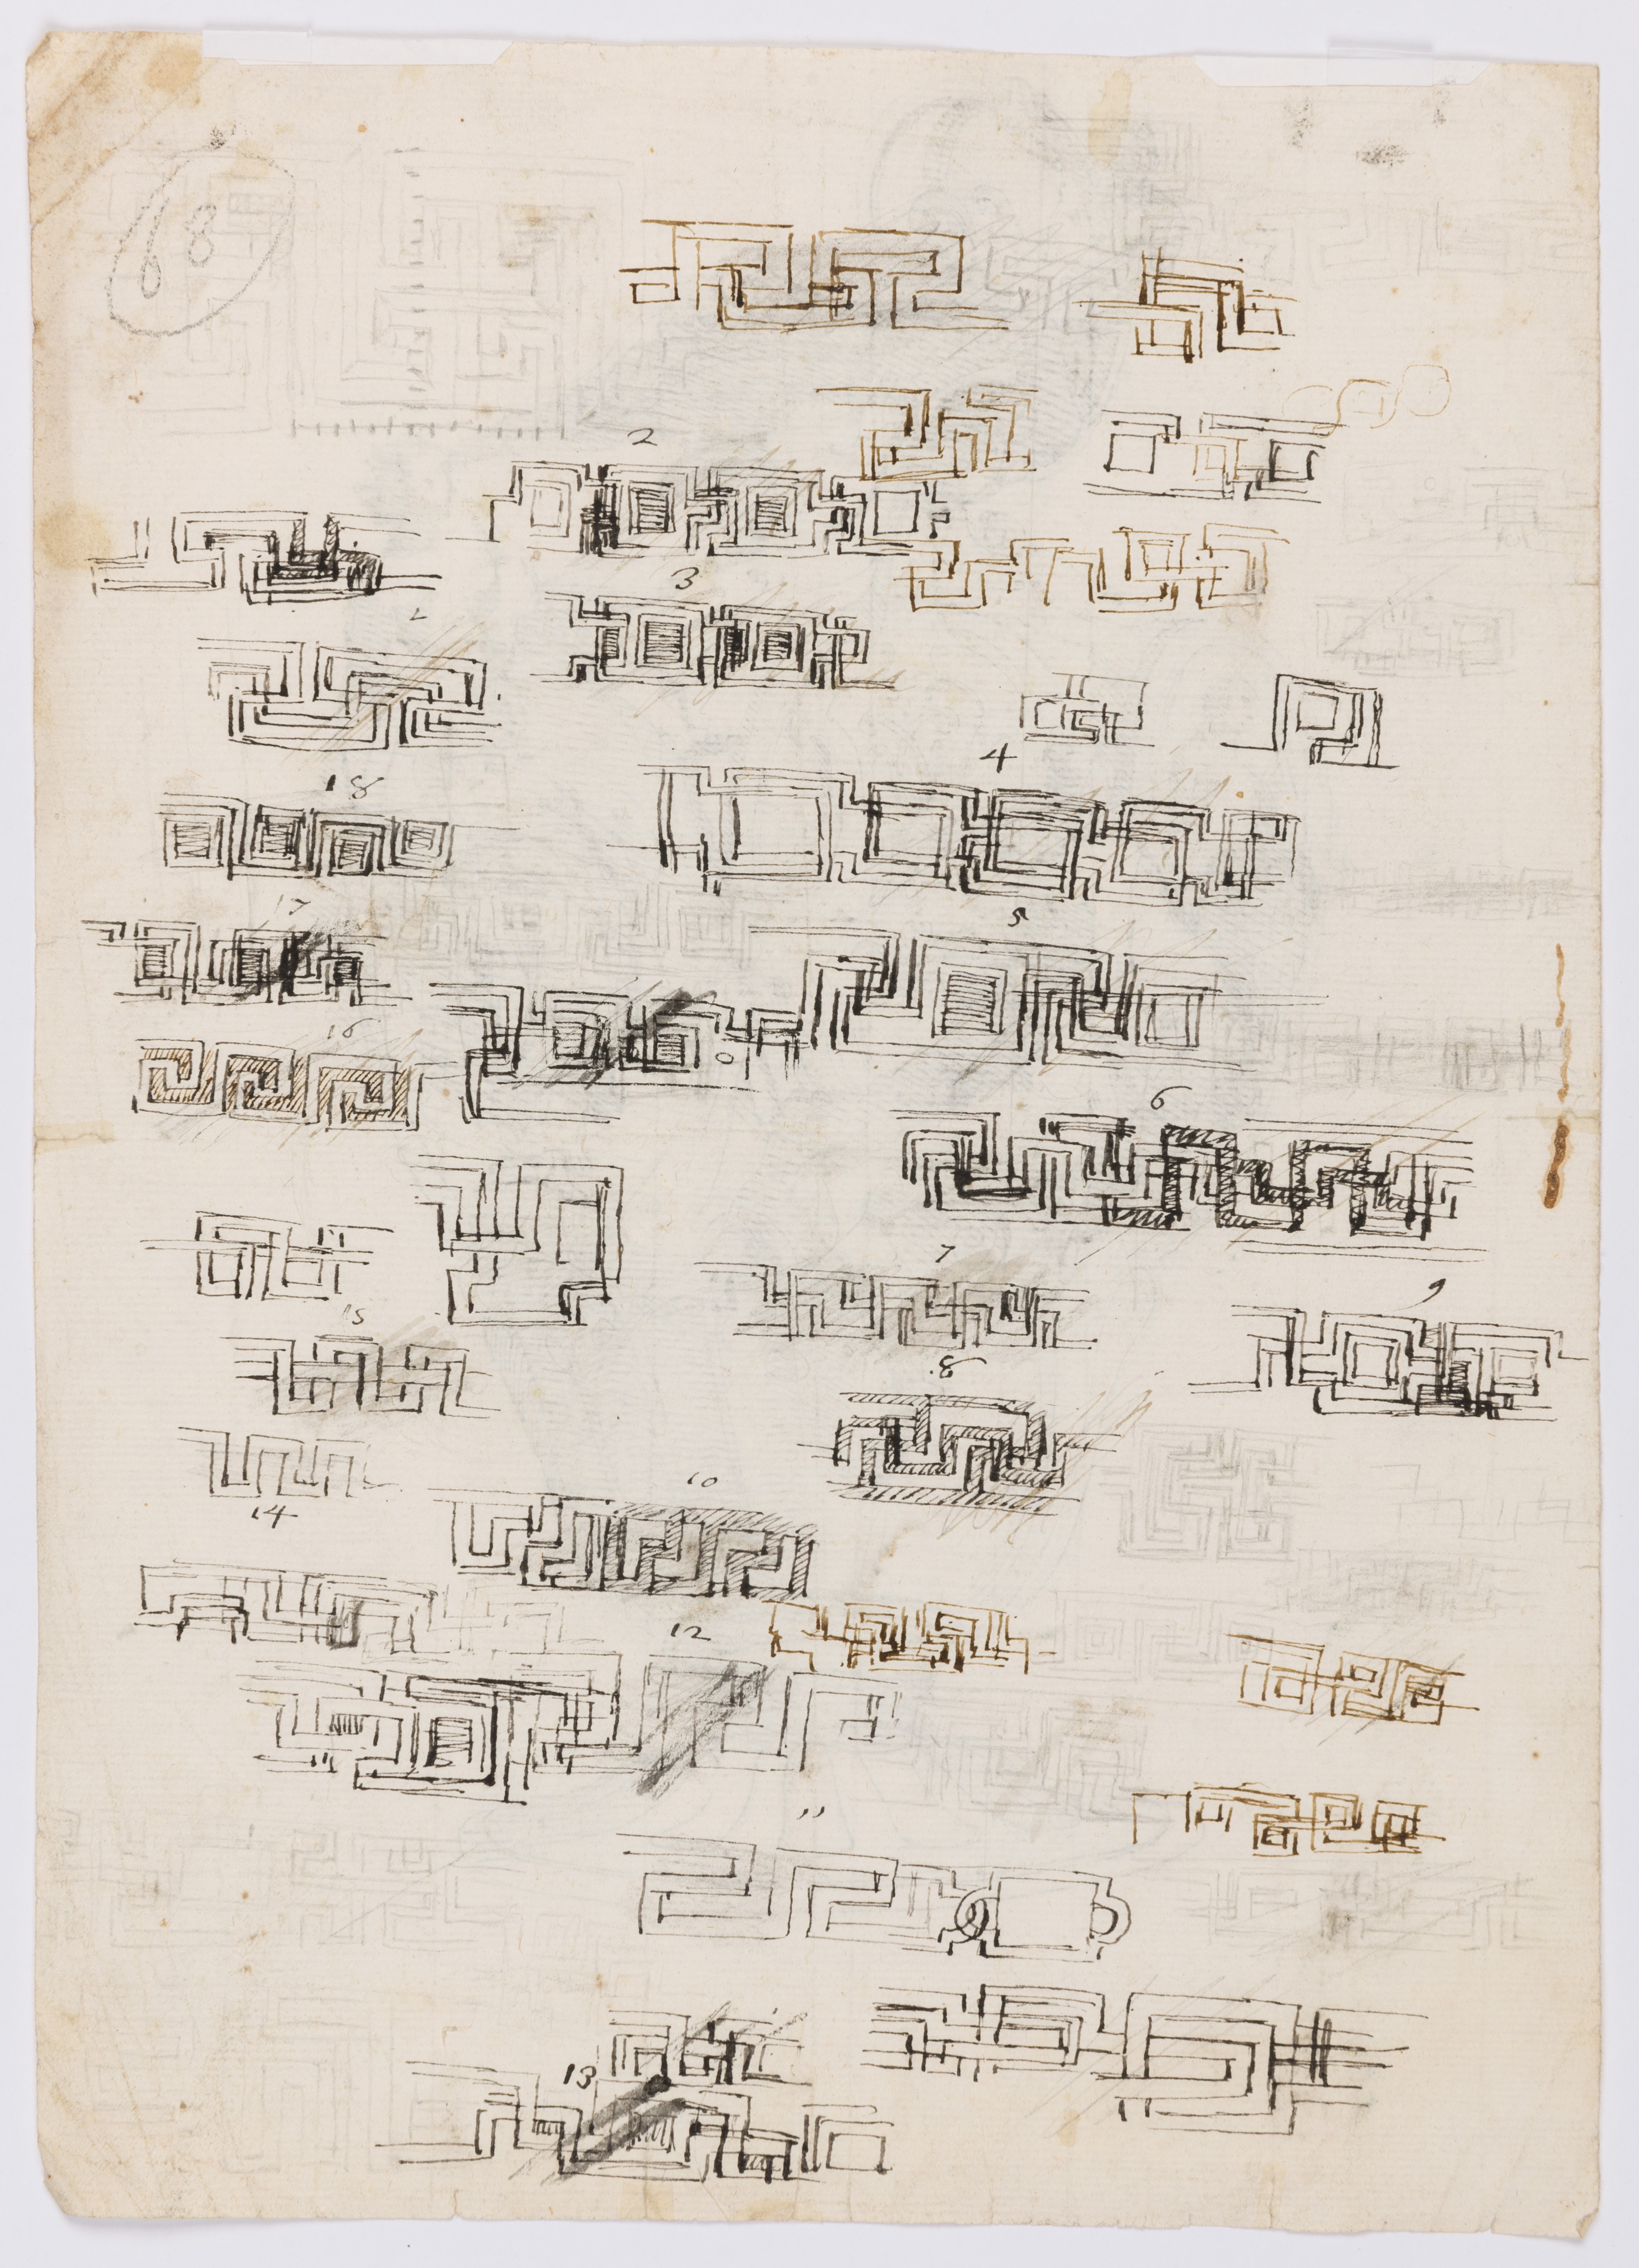 68
2
3
1
4
18
5
17
16
6
7
9
15
8
10
14
12
11
13